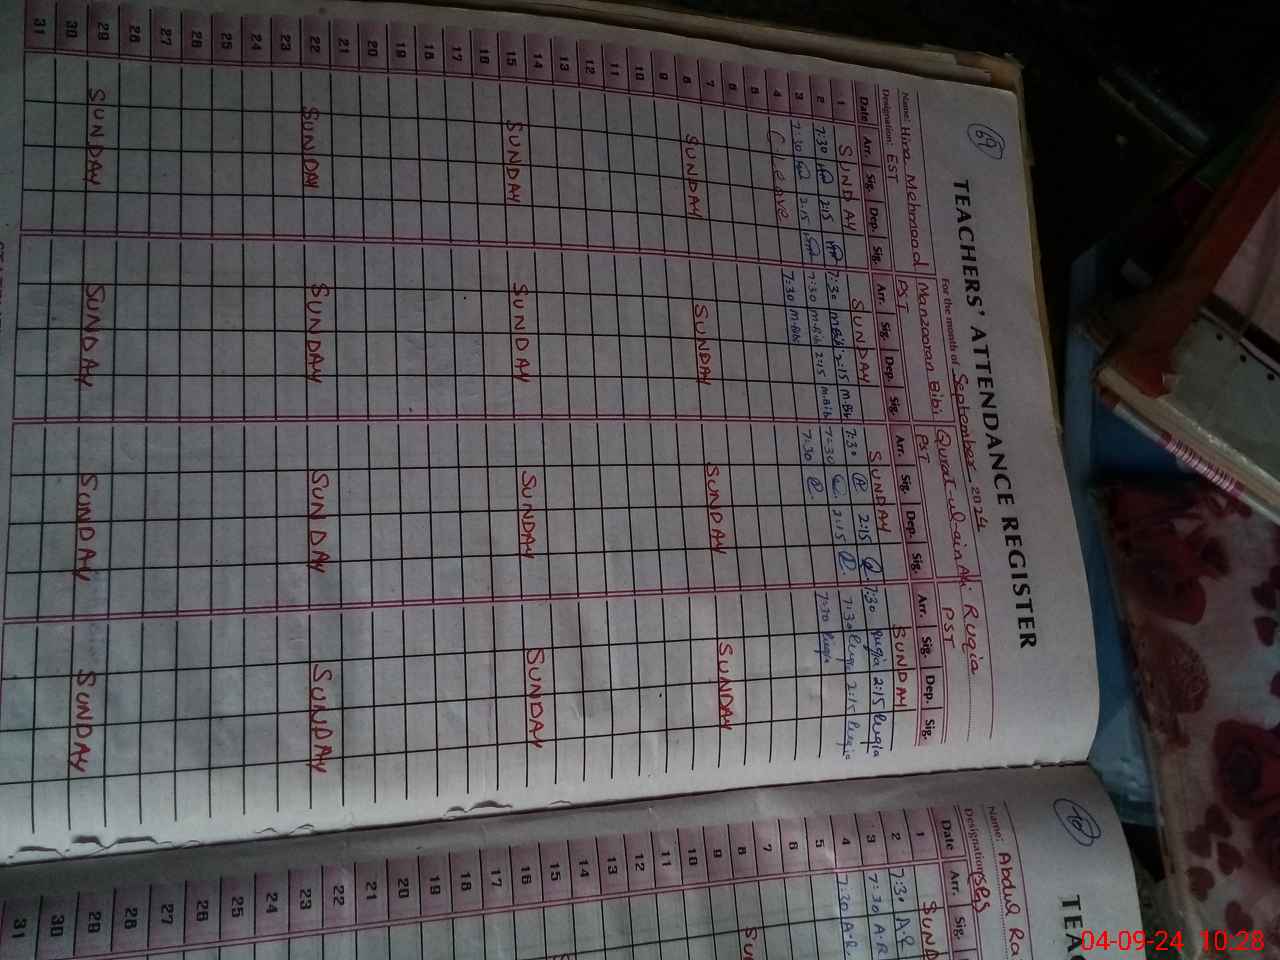 69
TEACHERS' ATTENDANCE REGISTER
For the month of September 2024
Name: Hina Mehmood Manzooran Bibi Qurat-ul-ain Ali Ruqia
Designation: EST PST PST PST
Date Arr. Sig. Dep. Sig. Arr. Sig. Dep. Sig. Arr. Sig. Dep. Sig. Arr. Sig. Dep. Sig.
1 SUNDAY SUNDAY SUNDAY SUNDAY
2 7:30 2:15 7:30 M.Bibi 2:15 M.Bibi 7:30 2:15 7:30 Ruqia 2:15 Ruqia
3 7:30 2:15 7:30 M.Bibi 2:15 M.Bibi 7:30 2:15 7:30 Ruqia 2:15 Ruqia
4 C leave 7:30 M.Bibi 7:30 7:30 Ruqia
5
6
7
8 SUNDAY SUNDAY SUNDAY SUNDAY
9
10
11
12
13
14
15 SUNDAY SUNDAY SUNDAY SUNDAY
16
17
18
19
20
21
22 SUNDAY SUNDAY SUNDAY SUNDAY
23
24
25
26
27
28
29 SUNDAY SUNDAY SUNDAY SUNDAY
30
31
70
TEAC
Name: Abdul Ra
Designation: SES
Date Arr. Sig.
1 SUND
2 7:30 A.R
3 7:30 A.R
4 7:30 A.R
5
6
7
8 SU
9
10
11
12
13
14
15 S
16
17
18
19
20
21
22
23
24
25
26
27
28
29
30
31
04-09-24 10:28